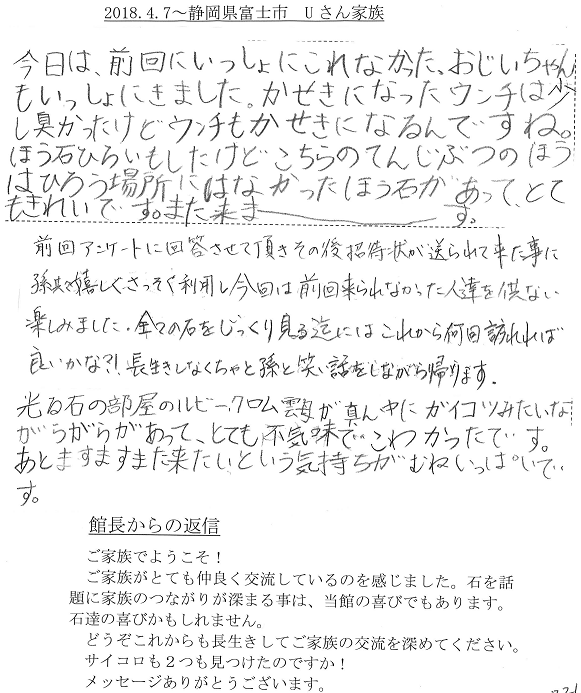 2018.4.7～静岡県富士市　Uさん家族
今日は、前回にいっしょにこれなかった、おじいちゃん
もいっしょにきました。かせきになったウンチは少
し臭かったけどウンチもかせきになるんですね。
ほう石ひろいもしたけどこちらのてんじぶつのほう
はひろう場所にはなかったほう石があって、とて
もきれいです。また来ま――す。
前回アンケートに回答させて頂きその後招待状が送られて来た事に
孫共々嬉しく、さっそく利用し今回は前回来られなかった人達を供ない
楽しみました。全ての石をじっくり見る迄にはこれから何回訪れれば
良いかな?!長生きしなくちゃと孫と笑い話をしながら帰ります。
光る石の部屋のルビー、クロム雲母が真ん中にガイコツみたいな
がらがらがあって、とても不気味でこわかったです。
あとますますまた来たいという気持ちがむねいっぱいで
す。
館長からの返信
ご家族でようこそ！
ご家族がとても仲良く交流しているのを感じました。石を話
題に家族のつながりが深まる事は、当館の喜びでもあります。
石達の喜びかもしれません。
どうぞこれからも長生きしてご家族の交流を深めてください。
サイコロも２つも見つけたのですか！
メッセージありがとうございます。